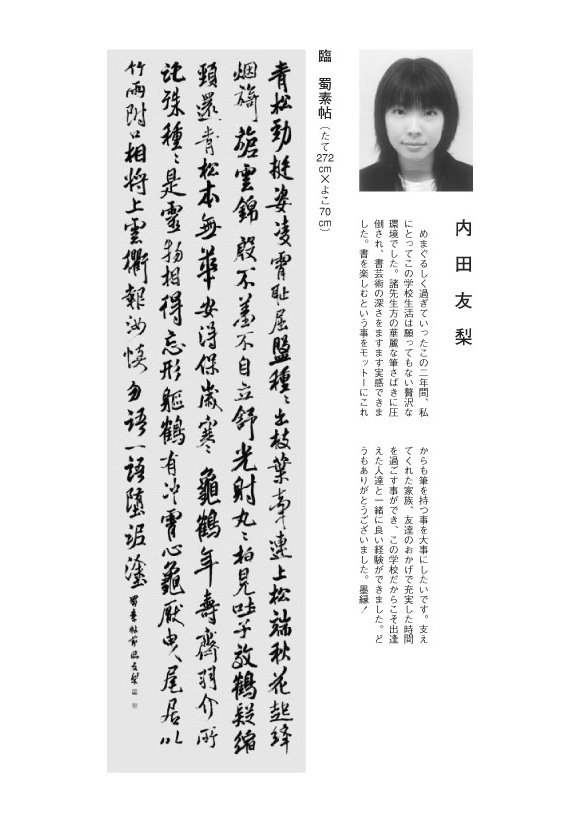 内田友梨
めまぐるしく過ぎていったこの二年間、私
にとってこの学校生活は願ってもない贅沢な
環境でした。諸先生方の華麗な筆さばきに圧
倒され、書芸術の深さをますます実感できま
した。書を楽しむという事をモットーにこれ
からも筆を持つ事を大事にしたいです。支え
てくれた家族、友達のおかげで充実した時間
を過ごす事ができ、この学校だからこそ出逢
えた人達と一緒に良い経験ができました。ど
うもありがとうございました。墨縁！
臨　蜀素帖（たて272cm×よこ70cm）
青松勁挺姿凌霄耻屈盤種々出枝葉牽連上松端秋花起絳
烟旖旎雲錦殷不羞不自立舒光射丸々柏見吐子效鶴疑縮
頸還青松本無華安得保歳寒々龜鶴年壽齊羽介所
託殊種々是靈物相得忘形軀鶴有冲霄心龜厭曳尾居以
竹兩附口相将上雲衢報汝慎勿語一語墮泥塗　蜀素帖節臨友梨